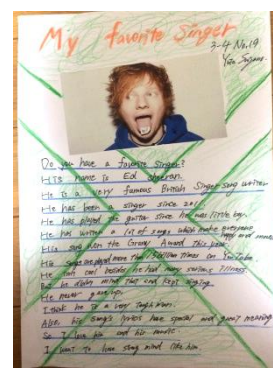 My favorite Singer
3-4 No.19
Do you have a favorite singer?
His name is Ed Sheeran.
He is a very famous British Singer song writer
He has been a singer since 2011.
He has played the guitar since he was little boy.
He has written a lot of songs which make everyone happy and
His song won the Award this year.
His songs are played more than billion times on YouTube.
He is cool besides he had many serious illness.
But he didn't mind that and kept singing.
He never gave up.
I think he is a very tough man.
Also his song's lyrics have special and great meaning
So I love him and his music.
I want to have strong mind like him.